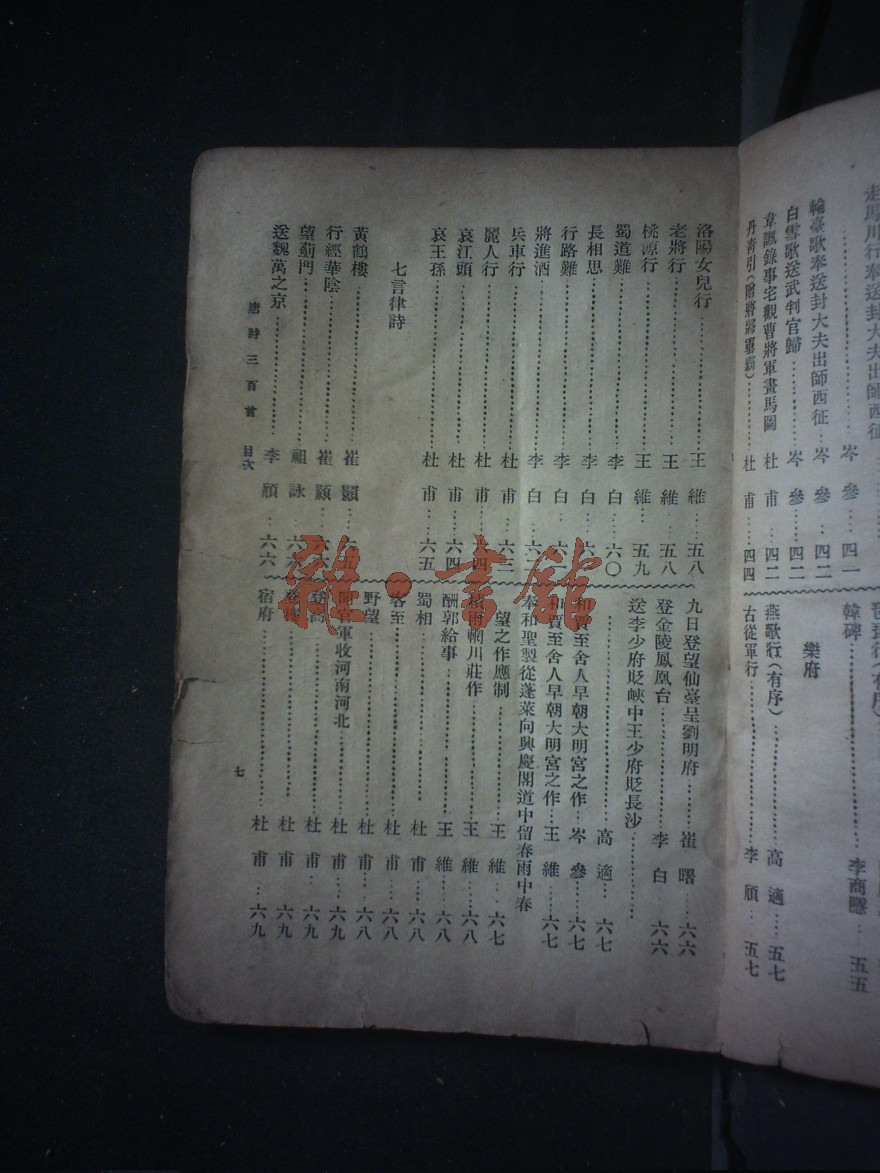 走馬川行奉送封大夫出師西征
岑參‥四一
輪臺歌奉送封大夫出師西征‥岑參‥四二
白雪歌送武判官歸‥岑參‥四二
韋諷錄事宅觀曹將軍畫馬圖 杜甫‥四二
丹青引(贈將 杜甫‥四四
琵琶行(有序)
韓碑‥李商隱‥五五
樂府
燕歌行(有序)‥高適‥五七
古從軍行‥李頎‥五七
洛陽女兒行‥王維‥五八
老將行‥王維‥五八
桃源行‥王維‥五九
蜀道難‥李白‥六〇
長相思‥李白‥六
行路難‥李白‥六
將進酒‥李白‥六
兵車行‥杜甫‥六三
麗人行‥杜甫‥六四
哀江頭‥杜甫‥六四
哀王孫‥杜甫‥六五
七言律詩
黃鶴樓‥崔顥‥六
行經華陰‥崔顥‥六
望薊門‥祖詠‥六
送魏萬之京‥李頎‥六六
九日登望仙臺呈劉明府‥崔曙‥六六
登金陵鳳凰台‥李白‥六六
送李少府貶峽中王少府貶長沙‥
‥高適‥六七
和賈至舍人早朝大明宮之作‥岑參‥六七
和賈至舍人早朝大明宮之作‥王維‥六七
奉和聖製從蓬萊向興慶閣道中留春雨中春
望之作應制‥王維‥六七
積雨輞川莊作‥王維‥六八
酬郭給事‥王維‥六八
蜀相‥杜甫‥六八
客至‥杜甫‥六八
野望‥杜甫‥六八
聞官軍收河南河北‥杜甫‥六九
登高‥杜甫‥六九
登樓‥杜甫‥六九
宿府‥杜甫‥六九
唐詩三百首 目次
七
雜·書館